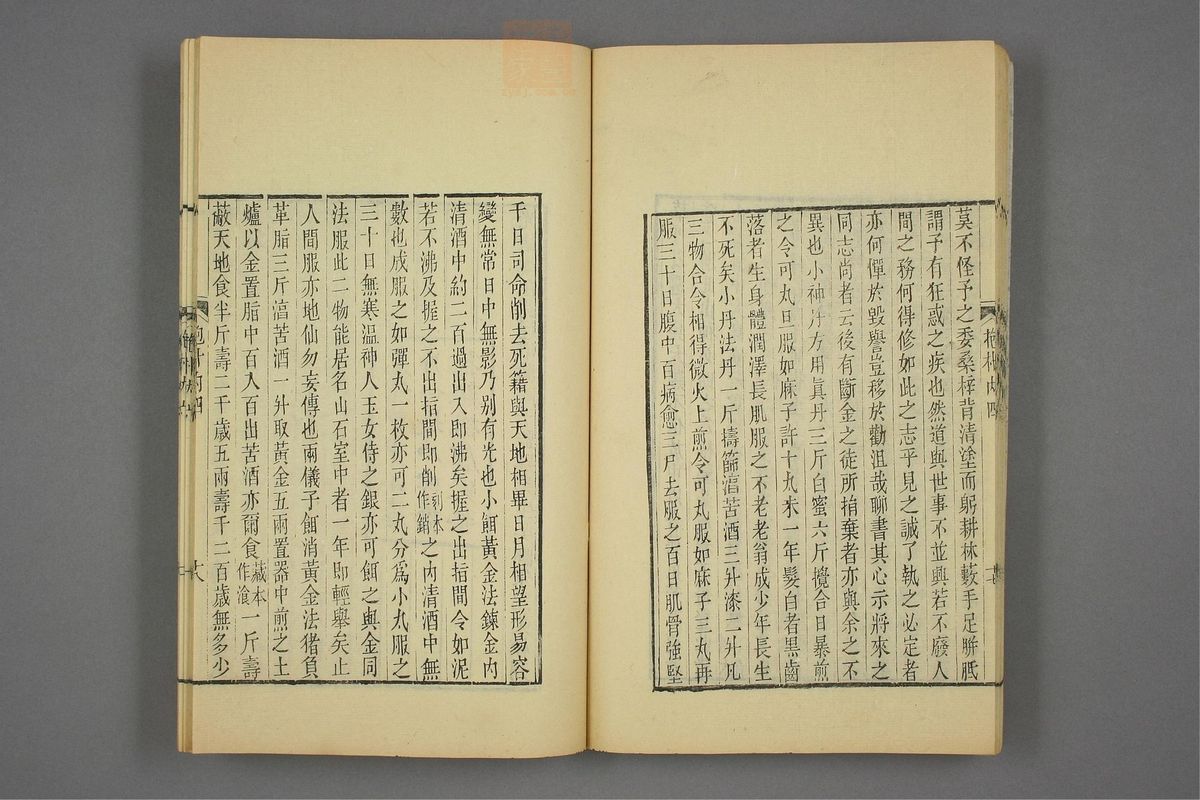 莫不怪予之委桑梓背清塗而躬耕林藪手足胼胝
謂予有狂惑之疾也然道與世事不並興若不廢人
間之務何得修如此之志乎見之誠了執之必定者
亦何憚於毀譽豈移於勸沮哉聊書其心示將來之
同志尚者云後有斷金之徒所捐棄者亦與余之不
異也小神丹方用眞丹三斤白蜜六斤攪合日暴煎
之令可丸旦服如麻子許十丸未一年髮白者黒齒
落者生身體潤澤長肌服之不老老翁成少年長生
不死矣小丹法丹一斤擣篩湻苦酒三升漆二升凡
三物合令相得微火上煎令可丸服如麻子三丸再
服三十日腹中百病愈三尸去服之百日肌骨強堅
千日司命削去死籍與天地相畢日月相望形易容
變無常日中無影乃别有光也小餌黃金法鍊金内
清酒中約二百過出入即沸矣握之出指間令如泥
若不沸及握之不出指間即削刻本作銷之内清酒中無
數也成服之如彈丸一枚亦可二丸分爲小丸服之
三十日無寒溫神人玉女侍之銀亦可餌之與金同
法服此二物能居名山石室中者一年即輕舉矣止
人間服亦地仙勿妄傳也兩儀子餌消黃金法猪負
革脂三斤湻苦酒一升取黃金五兩置器中煎之土
爐以金置脂中百入百出苦酒亦爾食藏本作飡一斤壽
蔽天地食半斤壽二千歲五兩壽千二百歲無多少
抱朴内四